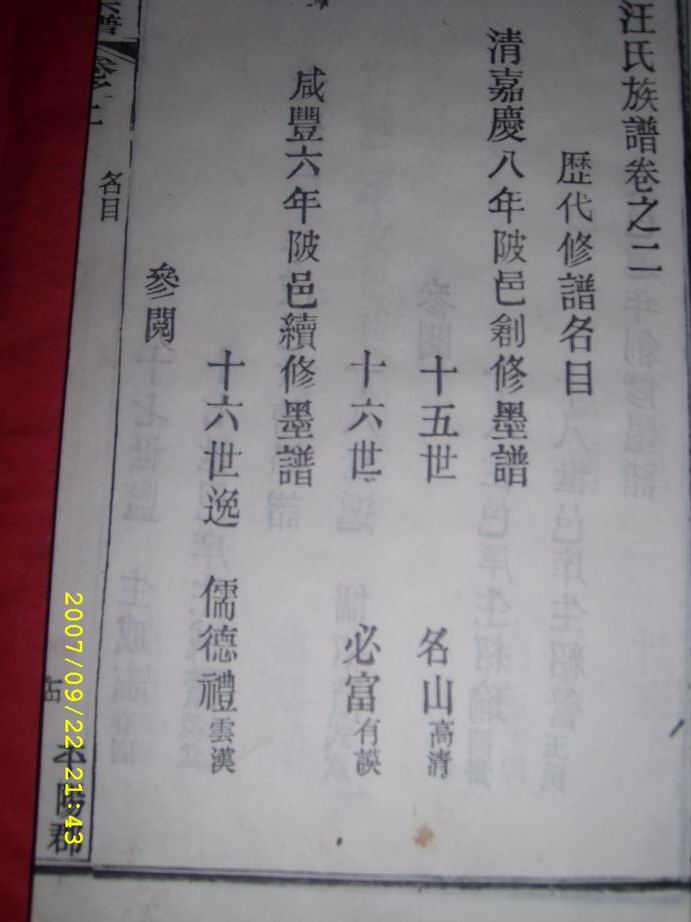 汪氏族譜卷之二
歷代修譜名目
清嘉慶八年陂邑創修墨譜
十五世 名山高清
十六世 必富有談
咸豐六年陂邑續修墨譜
十六世逸 儒德禮雲漢
參閱
名目
平陽郡
2007/09/22 21:43